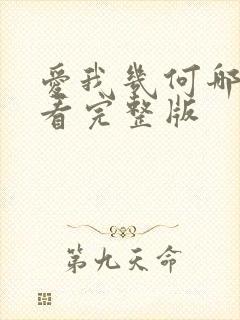 愛我幾何哪
看完整版
第九天命